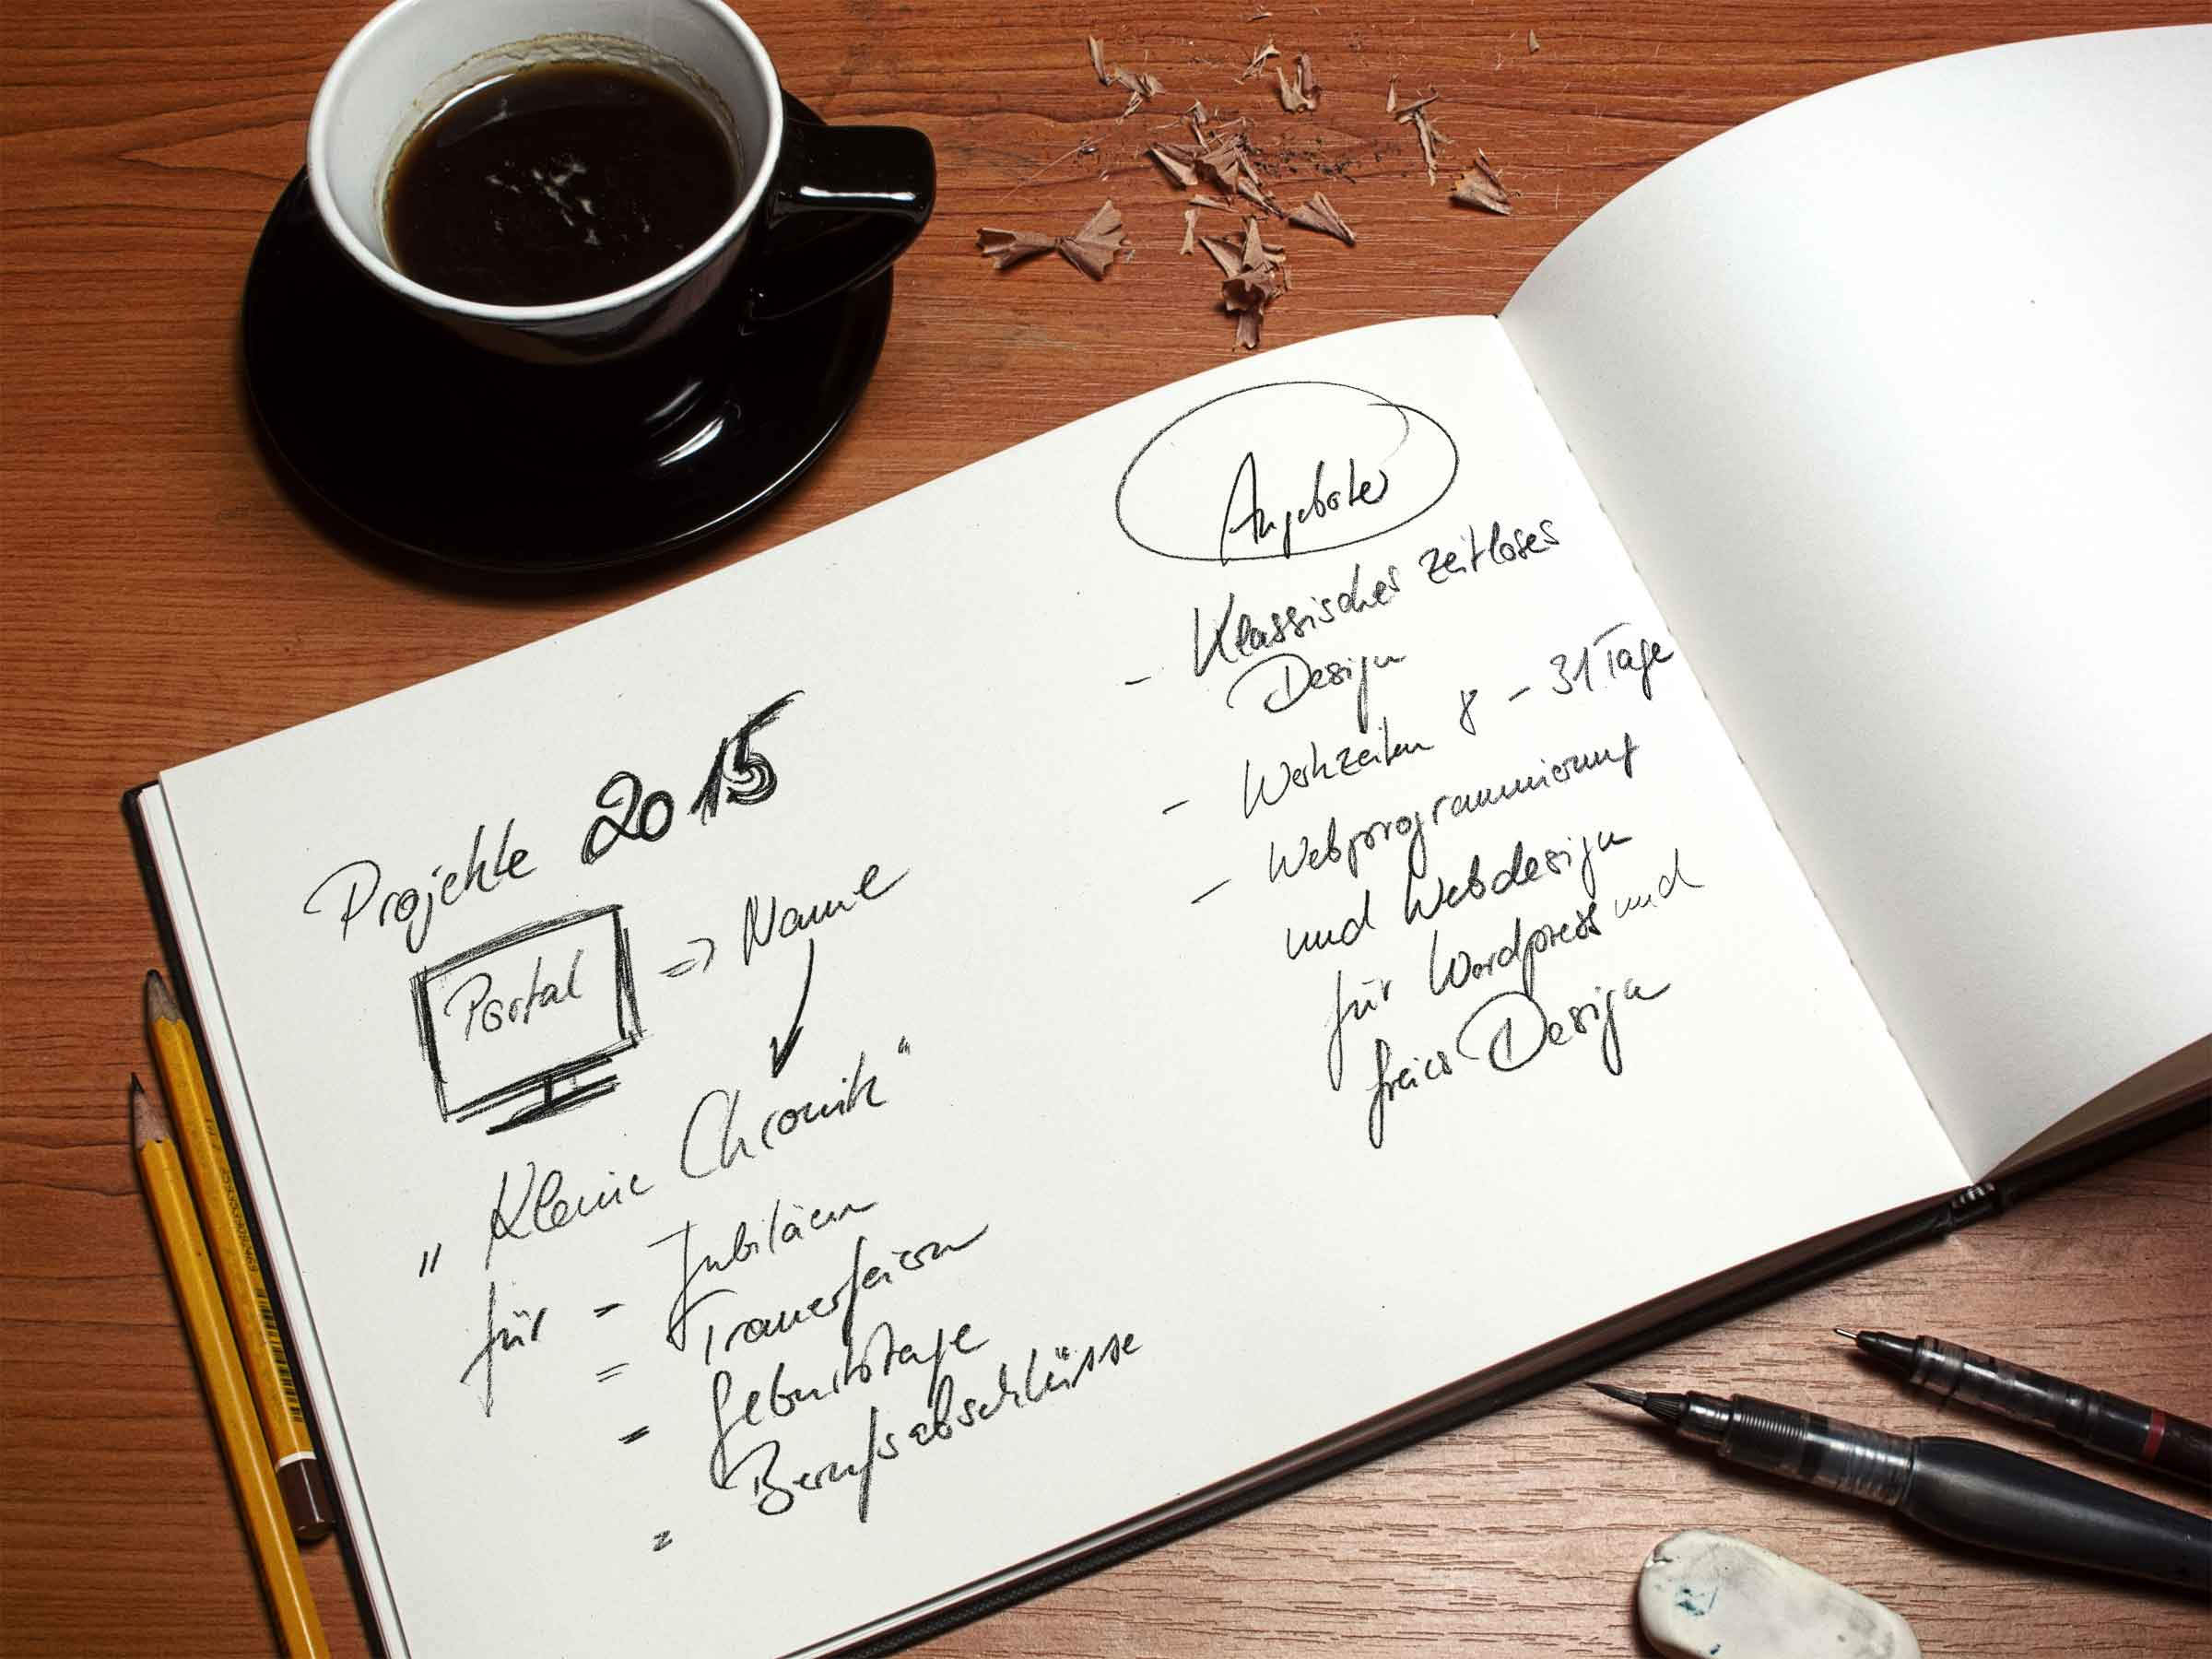 Projekte 2015
Portal => Name
„Kleine Chronik“
für - Jubiläen
= Trauerfeiern
- Geburtstage
= Berufsabschlüsse
Angebote
- Klassisches zeitloses
Design
- Werkzeiten 8 - 31 Tage
- Webprogrammierung
und Webdesign
für Wordpress und
freies Design